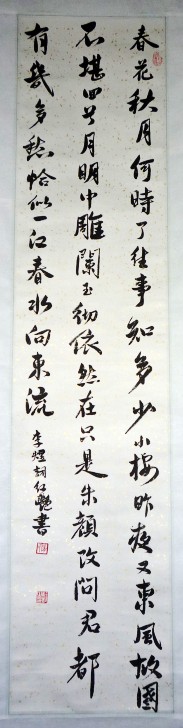 春花秋月何時了往事知多少小樓昨夜又東風故國
不堪回首月明中雕闌玉砌依然在只是朱顏改問君都
有幾多愁恰似一江春水向東流
李煜詞艷書